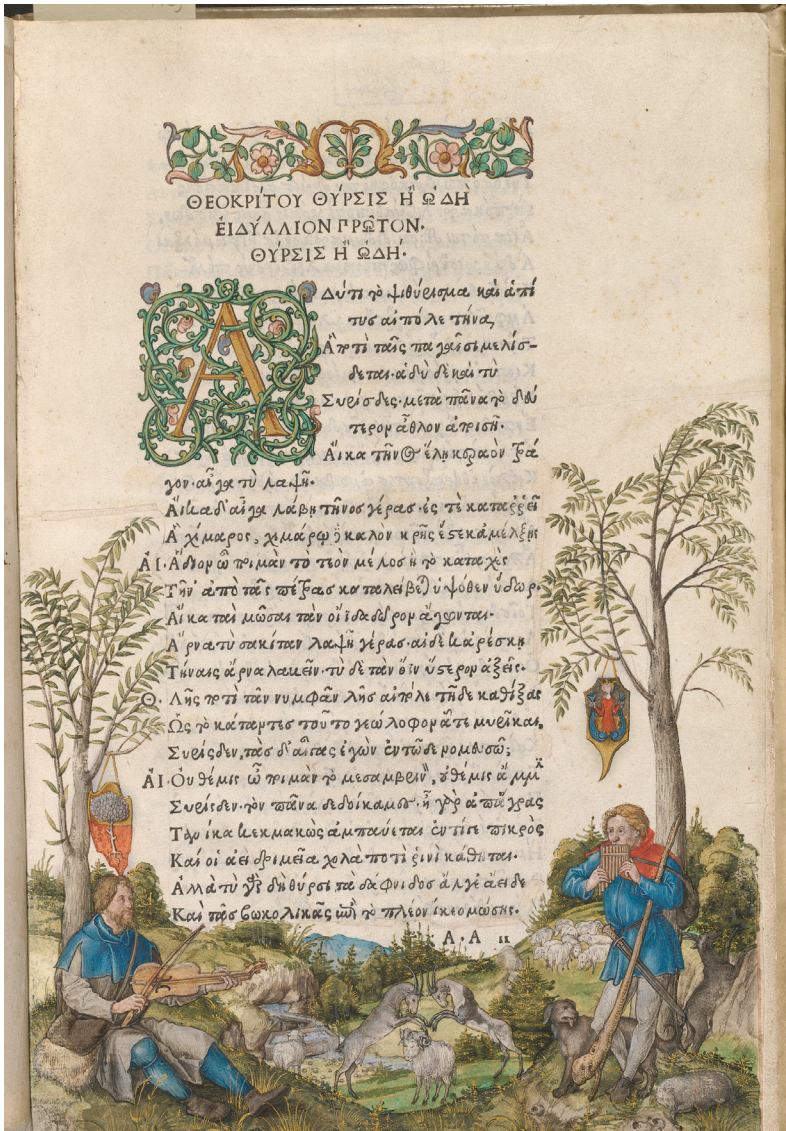 ΘΕΟΚΡΊΤΟΥ ΘΎΡΣΙΣ Ἢ ᾨΔῊ
ἘΙΔΎΛΛΙΟΝ ΠΡΩ͂ΤΟΝ.
ΘΎΡΣΙΣ Ἢ ᾨΔΉ.
Α Δύτι τὸ ψιθύρισμα καὶ ἁ πί
τυς αἰπόλε τήνα,
Ἃ ποτὶ ταῖς παγαῖσι μελίσ-
δεται. ἁδὺ δὲ καὶ τὺ
Συρίσδες. μετὰ πᾶνα τὸ δεύ
τερον ἆθλον ἀποισῇ.
Αἴκα τῆνος ἕλῃ κεραὸν τρά
γον. αἶγα τὺ λαψῇ.
Αἴκα δ' αἶγα λάβῃ τῆνος γέρας. ἐς τὲ καταῤῥεῖ
Ἁ χίμαρος, χιμάρῳ δὲ καλὸν κρῆς ἔστε κἀμέλξῃς
ΑΙ. Ἅδιον ὦ ποιμὰν τὸ τεὸν μέλος ἢ τὸ καταχὲς
Τῆν ἀπὸ τᾶς πέτρας καταλείβεται ὑψόθεν ὕδωρ.
Αἴκα ταὶ μῶσαι τὰν οἴϊδα δῶρον ἄγωνται.
Ἄρνα τὺ σακίταν λαψῇ γέρας. αἰ δέ κ' ἀρέσκῃ
Τήναις ἄρνα λαβεῖν. τὺ δὲ τὰν ὄϊν ὕστερον ἀξεῖς.
Θ. Λῇς ποτὶ τᾶν νυμφᾶν λῇς αἰπόλε τῇδε καθίξας
Ὡς τὸ κάταντες τοῦτο γεώλοφον ἅτε μυρῖκαι,
Συρίσδεν, τὰς δ' αἶγας ἐγὼν ἐν τῷδε νομευσῶ;
ΑΙ. Οὐ θέμις ὦ ποιμὰν τὸ μεσαμβρινὸν, οὐ θέμις ἄμμιν
Συρίσδεν. τὸν πᾶνα δεδοίκαμες. ἦ γὰρ ἀπ' ἄγρας
Τανίκα κεκμακὼς ἀμπαύεται ἐντί γε πικρὸς
Καί οἱ ἀεὶ δριμεῖα χολὰ ποτὶ ῥινὶ κάθηται.
Ἀλλὰ τὺ γὰρ δὴ θύρσι τὰ δάφνιδος ἄλγε' ἄειδε
Καὶ τᾶς βωκολικᾶς ἐπὶ τὸ πλέον ἵκεο μώσης.
Α.Α ii